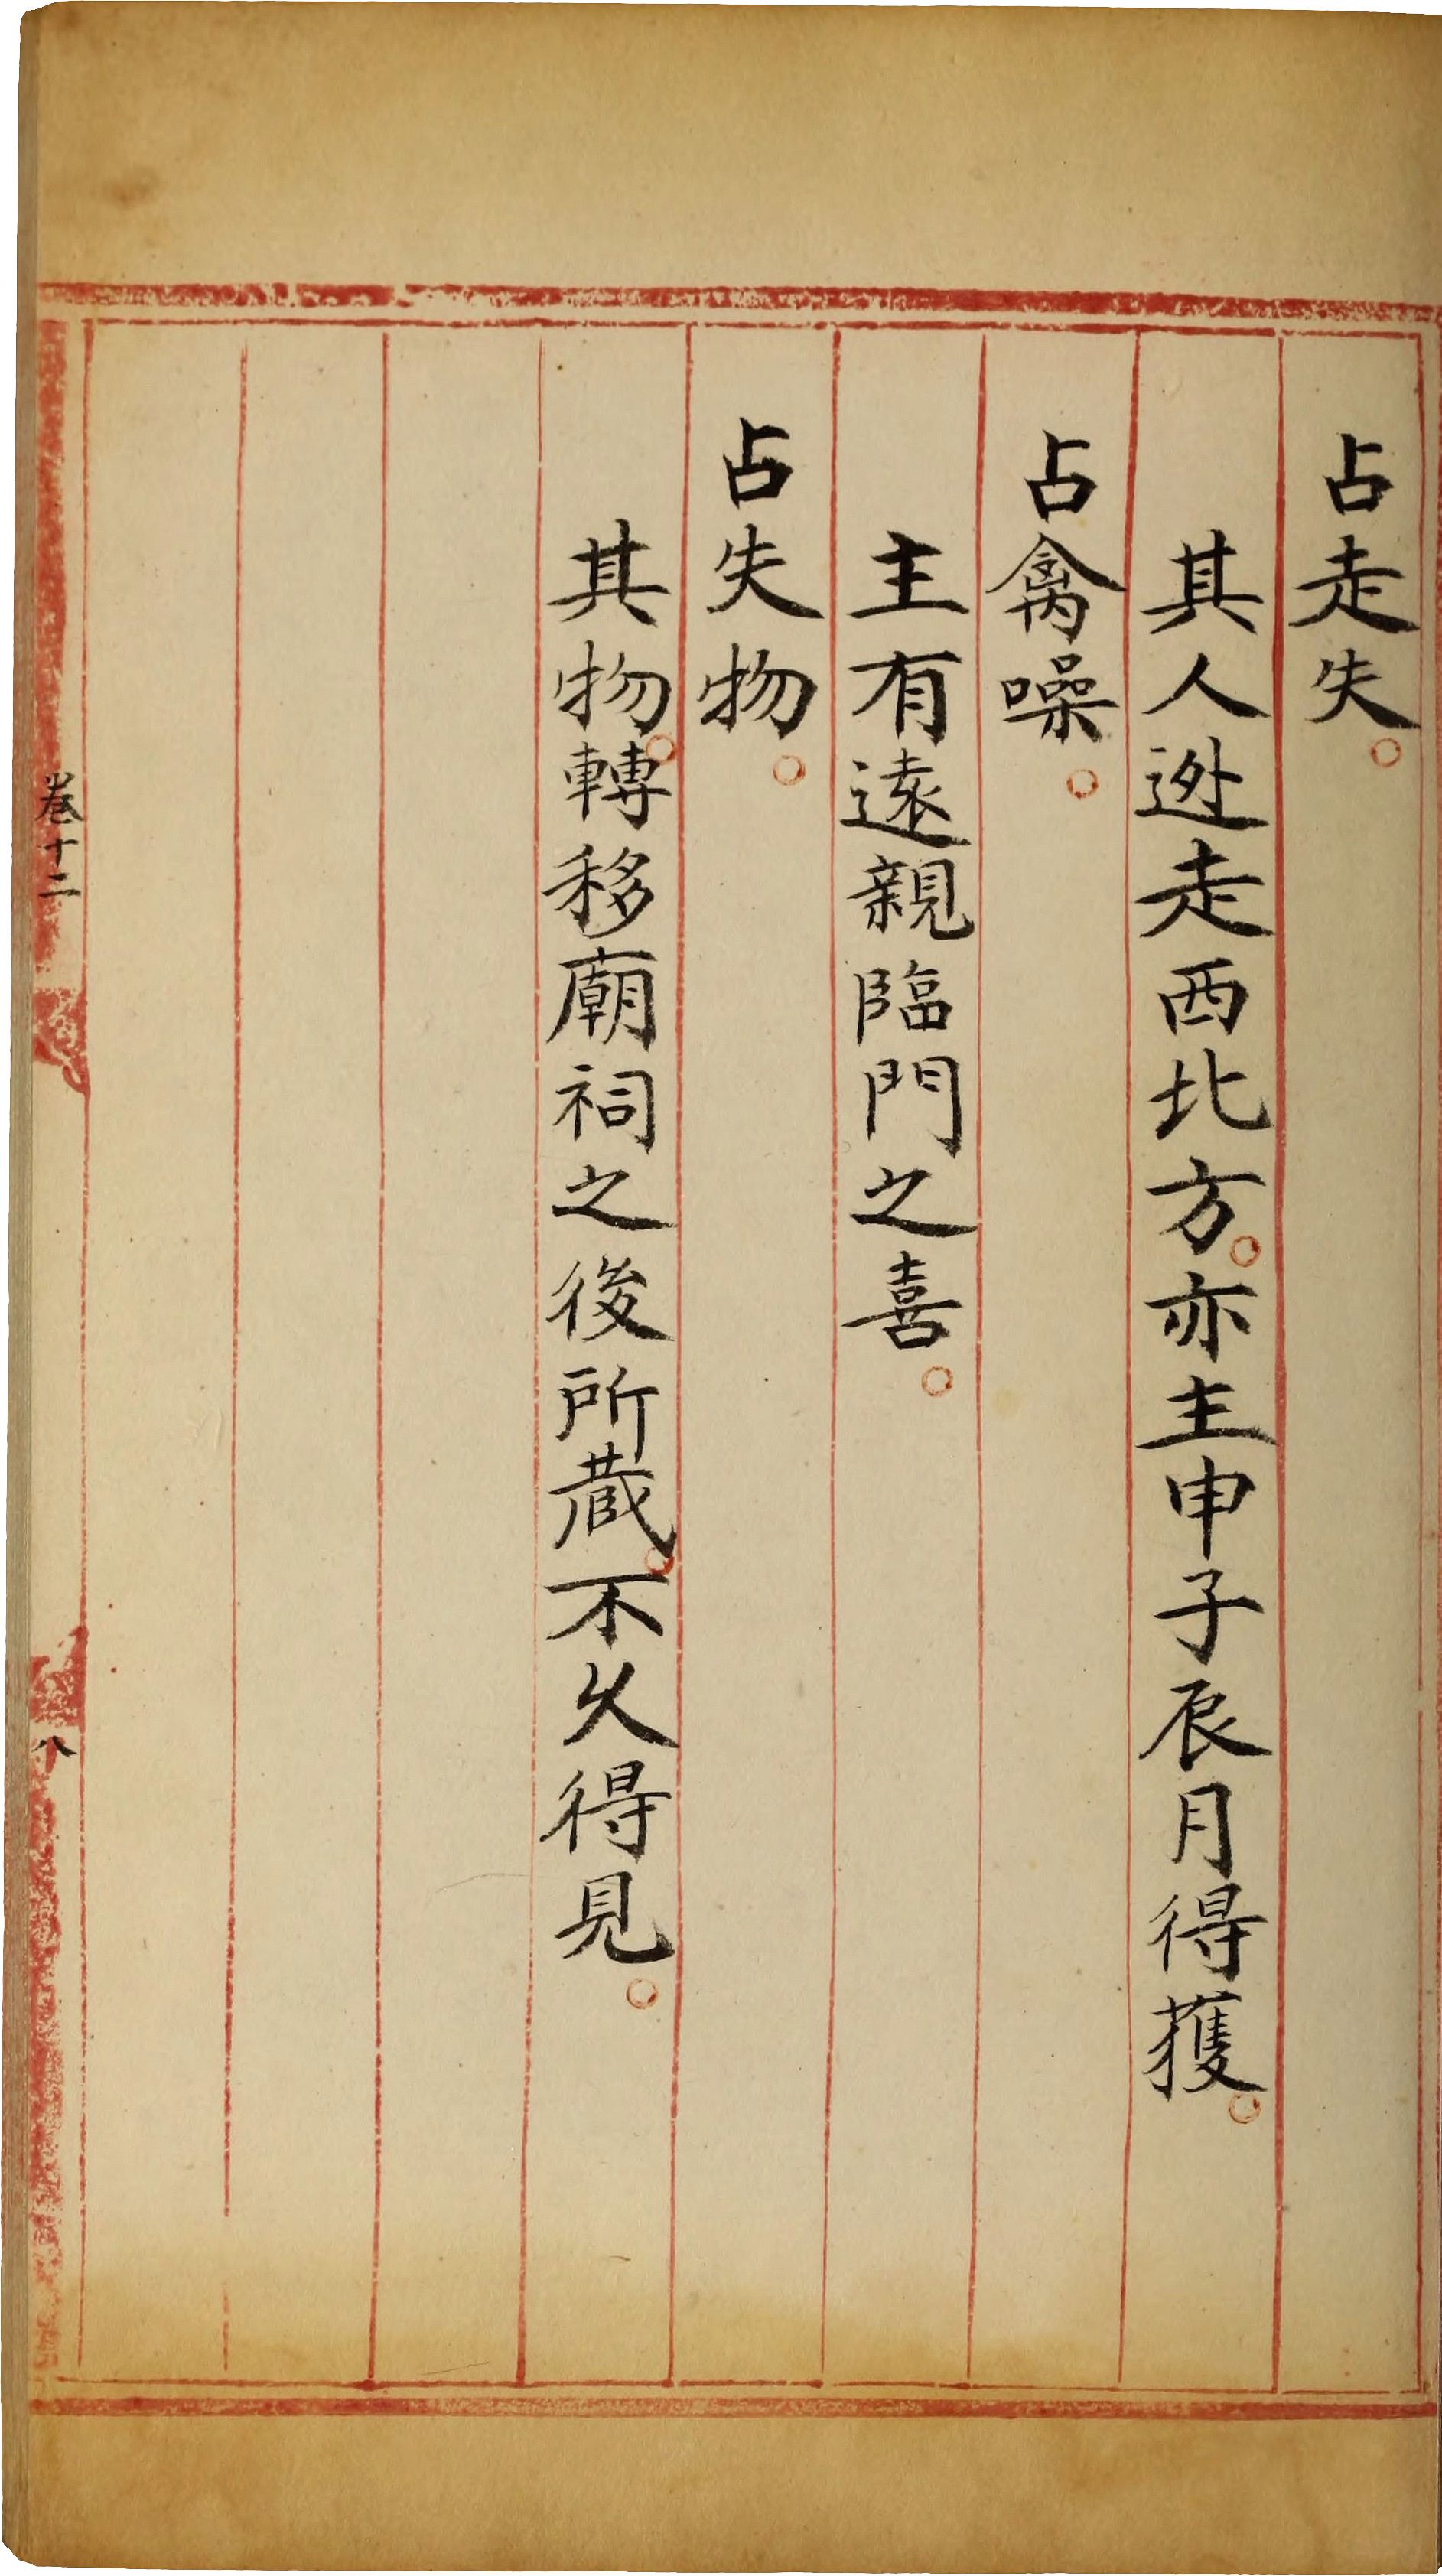 占走失。
其人迯走西北方。亦主申子辰月得獲。
占禽噪。
主有遠親臨門之喜。
占失物。
其物。轉移廟祠之後所蔵。不久得見。
卷十二
八